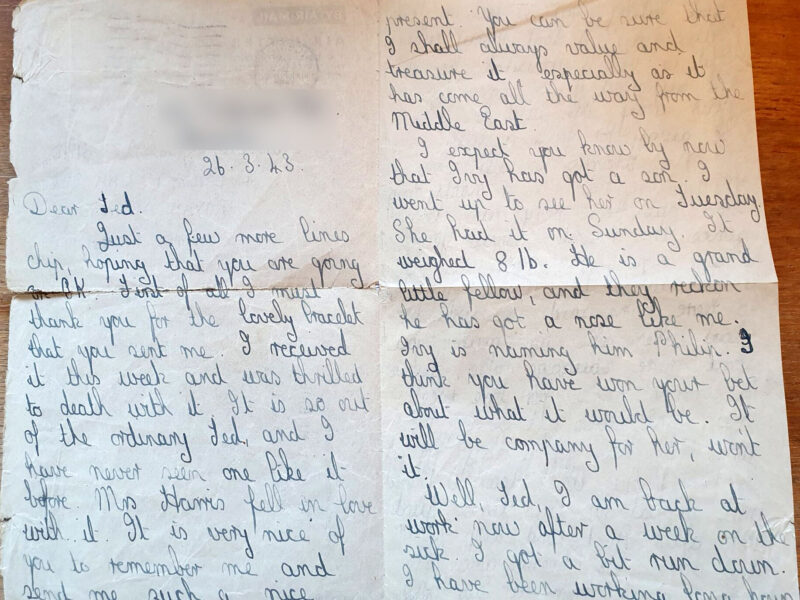 BY AIR MAIL
26.3.43.
Dear Ted.
Just a few more lines
chip, hoping that you are going
on OK. First of all I must
thank you for the lovely bracelet
that you sent me. I received
it this week and was thrilled
to death with it. It is so out
of the ordinary Ted, and I
have never seen one like it
before. Mrs Harris fell in love
with it. It is very nice of
you to remember me and
send me such a nice
present. You can be sure that
I shall always value and
treasure it, especially as it
has come all the way from the
Middle East.
I expect you know by now
that Ivy has got a son. I
went up to see her on Tuesday.
She had it on Sunday. It
weighed 8 lb. He is a grand
little fellow, and they reckon
he has got a nose like me.
Ivy is naming him Philip. I
think you have won your bet
about what it would be. It
will be company for her, won't
it.
Well, Ted, I am back at
work now after a week on the
sick. I got a bit run down.
I have been working long hours